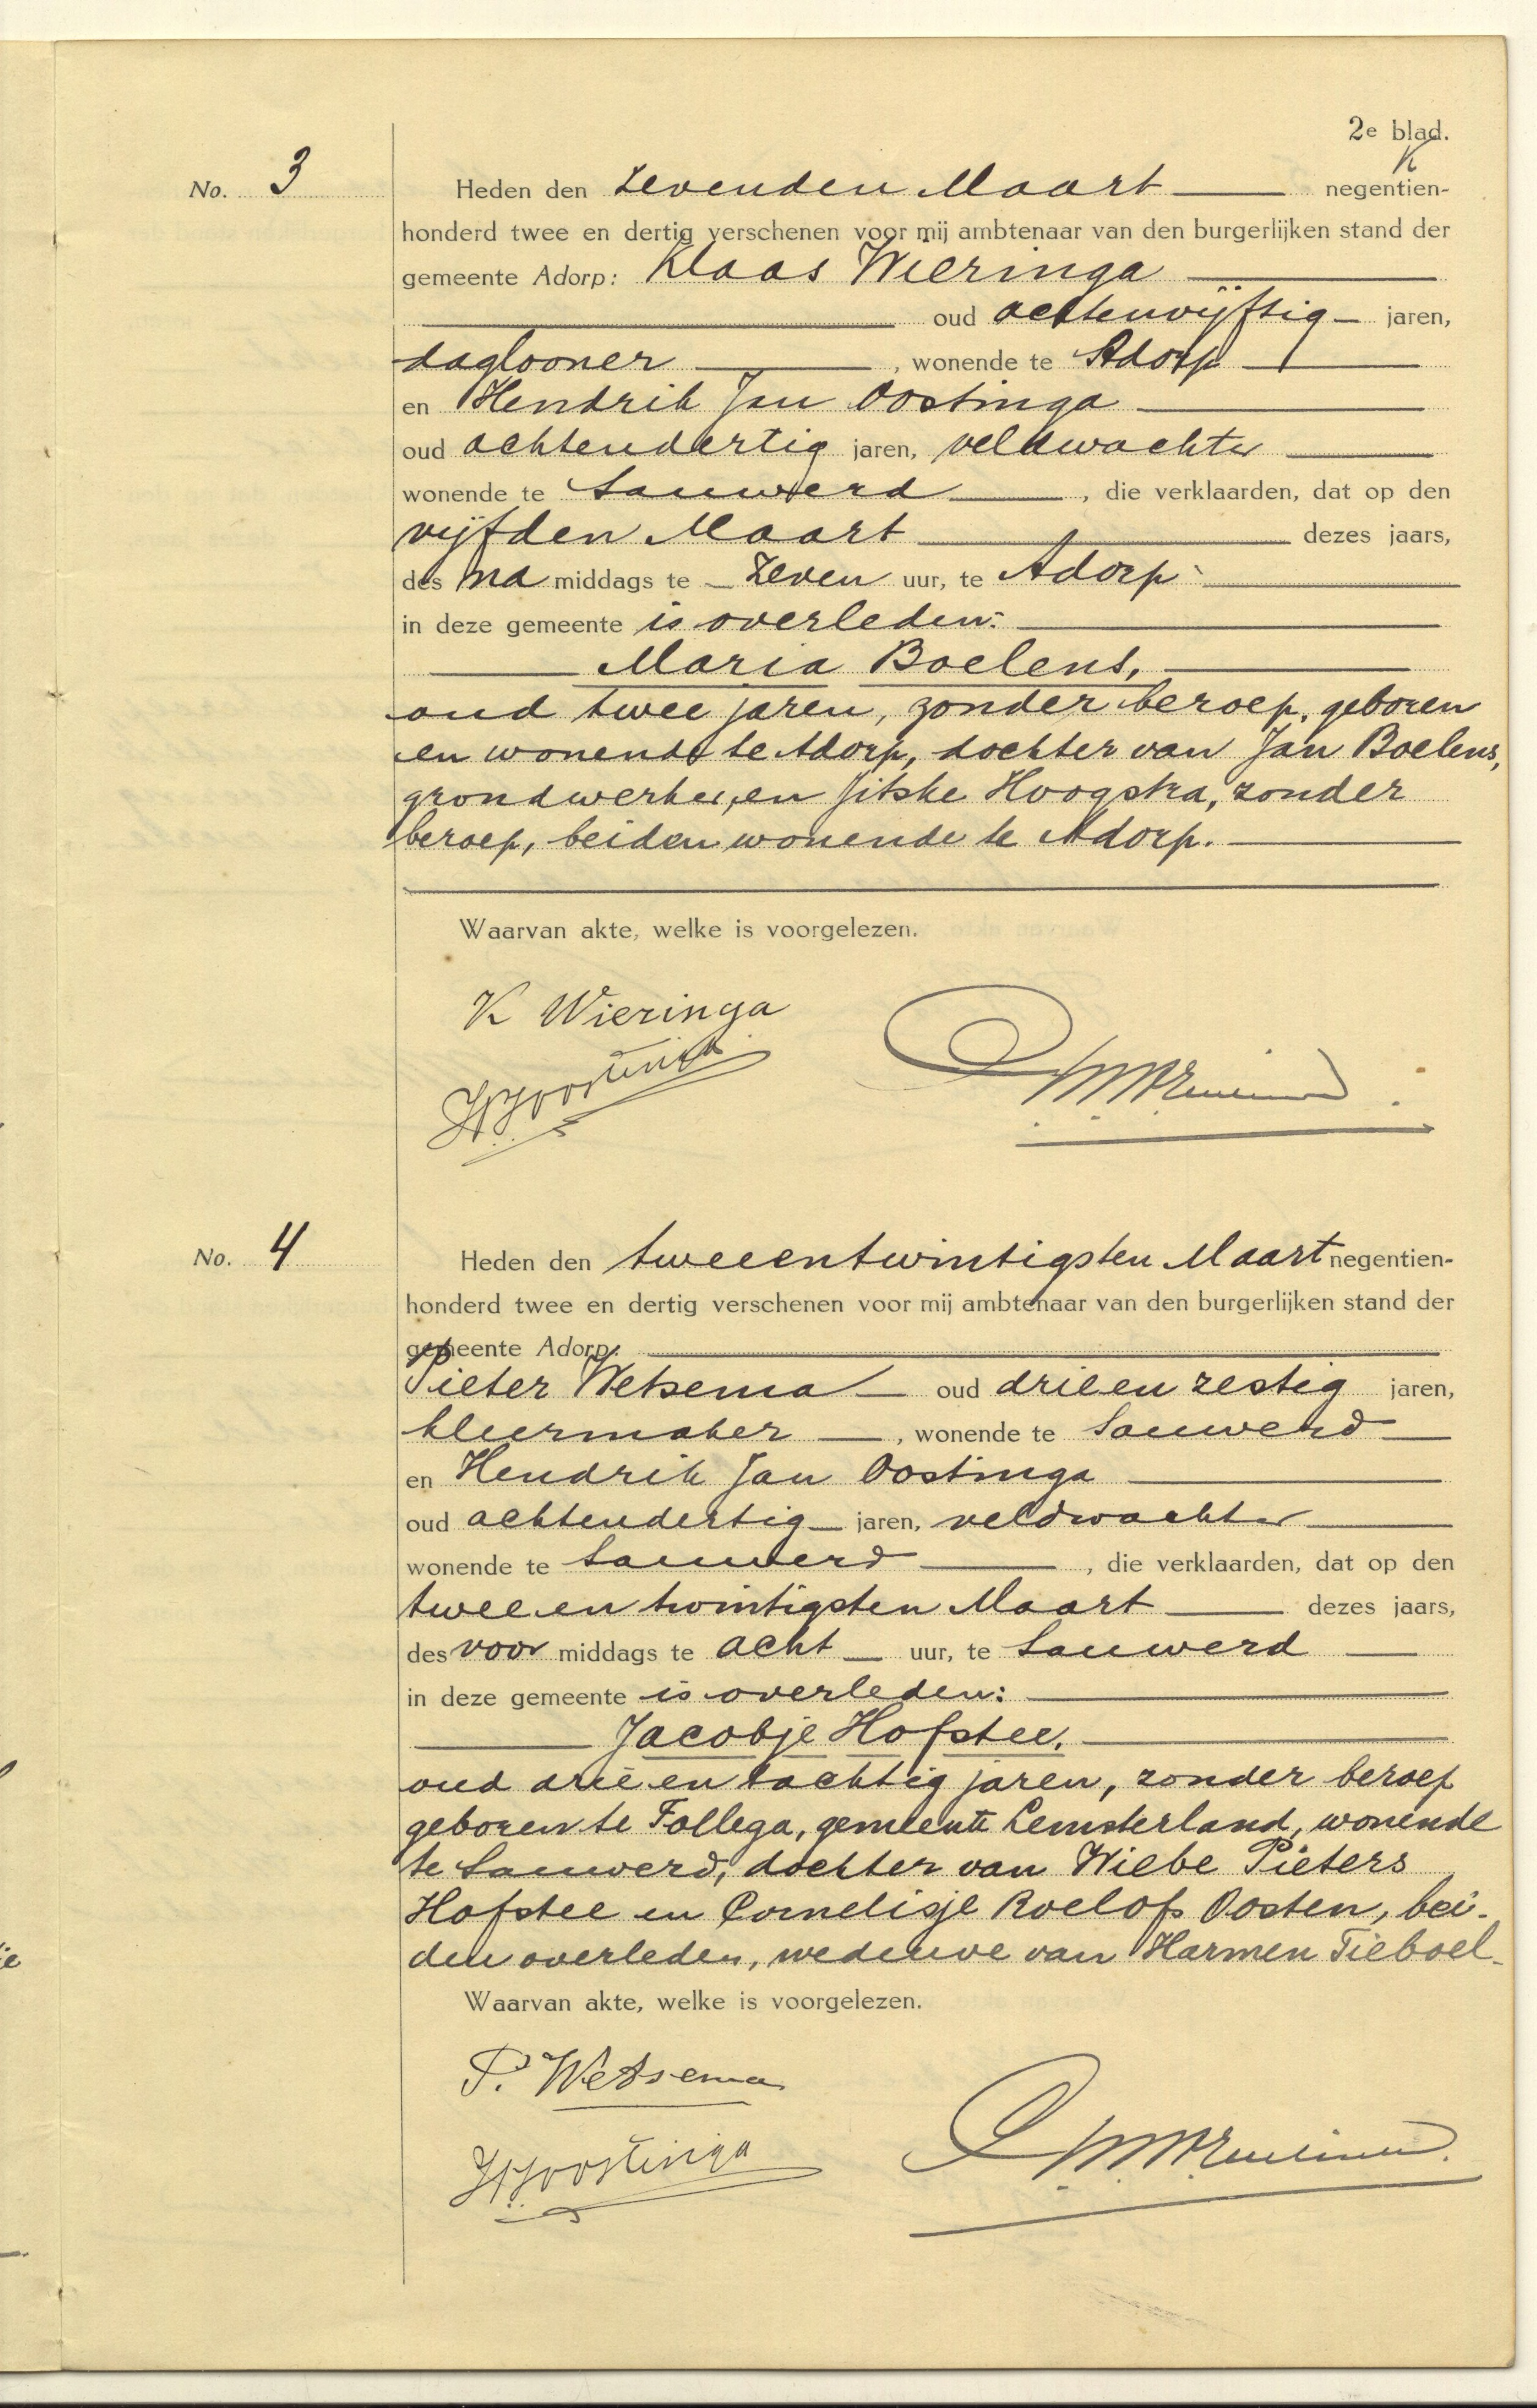 2e blad.
K
No. 3
Heden den zevenden Maart negentien-
honderd twee en dertig verschenen voor mij ambtenaar van den burgerlijken stand der
gemeente Adorp: Klaas Wieringa
oud achtenvijftig jaren,
daglooner, wonende te Adorp
en Hendrik Jan Oostinga
oud achtendertig jaren, veldwachter
wonende te Sauwerd, die verklaarden, dat op den
vijfden Maart dezes jaars,
des na middags te zeven uur, te Adorp
in deze gemeente is overleden:
Maria Boelens,
oud twee jaren, zonder beroep, geboren
en wonende te Adorp, dochter van Jan Boelens,
grondwerker, en Jitske Hoogstra, zonder
beroep, beiden wonende te Adorp.
Waarvan akte, welke is voorgelezen.
K Wieringa
HJOostinga
No. 4
Heden den tweeentwintigsten Maart negentien-
honderd twee en dertig verschenen voor mij ambtenaar van den burgerlijken stand der
gemeente Adorp:
Pieter Wetsema oud drieenzestig jaren,
kleermaker, wonende te Sauwerd
en Hendrik Jan Oostinga
oud achtendertig jaren, veldwachter
wonende te Sauwerd, die verklaarden, dat op den
tweeentwintigsten Maart dezes jaars,
des voor middags te acht uur, te Sauwerd
in deze gemeente is overleden:
Jacobje Hofstee,
oud drieentachtig jaren, zonder beroep
geboren te Follega, gemeente Lemsterland, wonende
te Sauwerd, dochter van Wiebe Pieters
Hofstee en Cornelisje Roelofs Oosten, bei-
den overleden, weduwe van Harmen Tieboel-
Waarvan akte, welke is voorgelezen.
P. Wetsema
HJOostinga